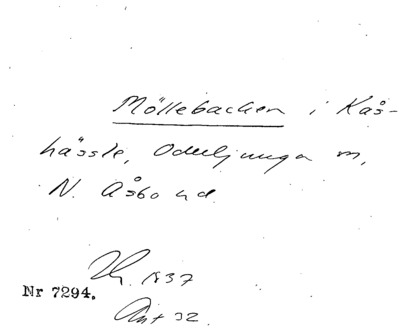 Möllebacken i Kås-
hässle, Oderljunga m,
N. Åsbo hd
1937
Nr 7294.
Ant 32.